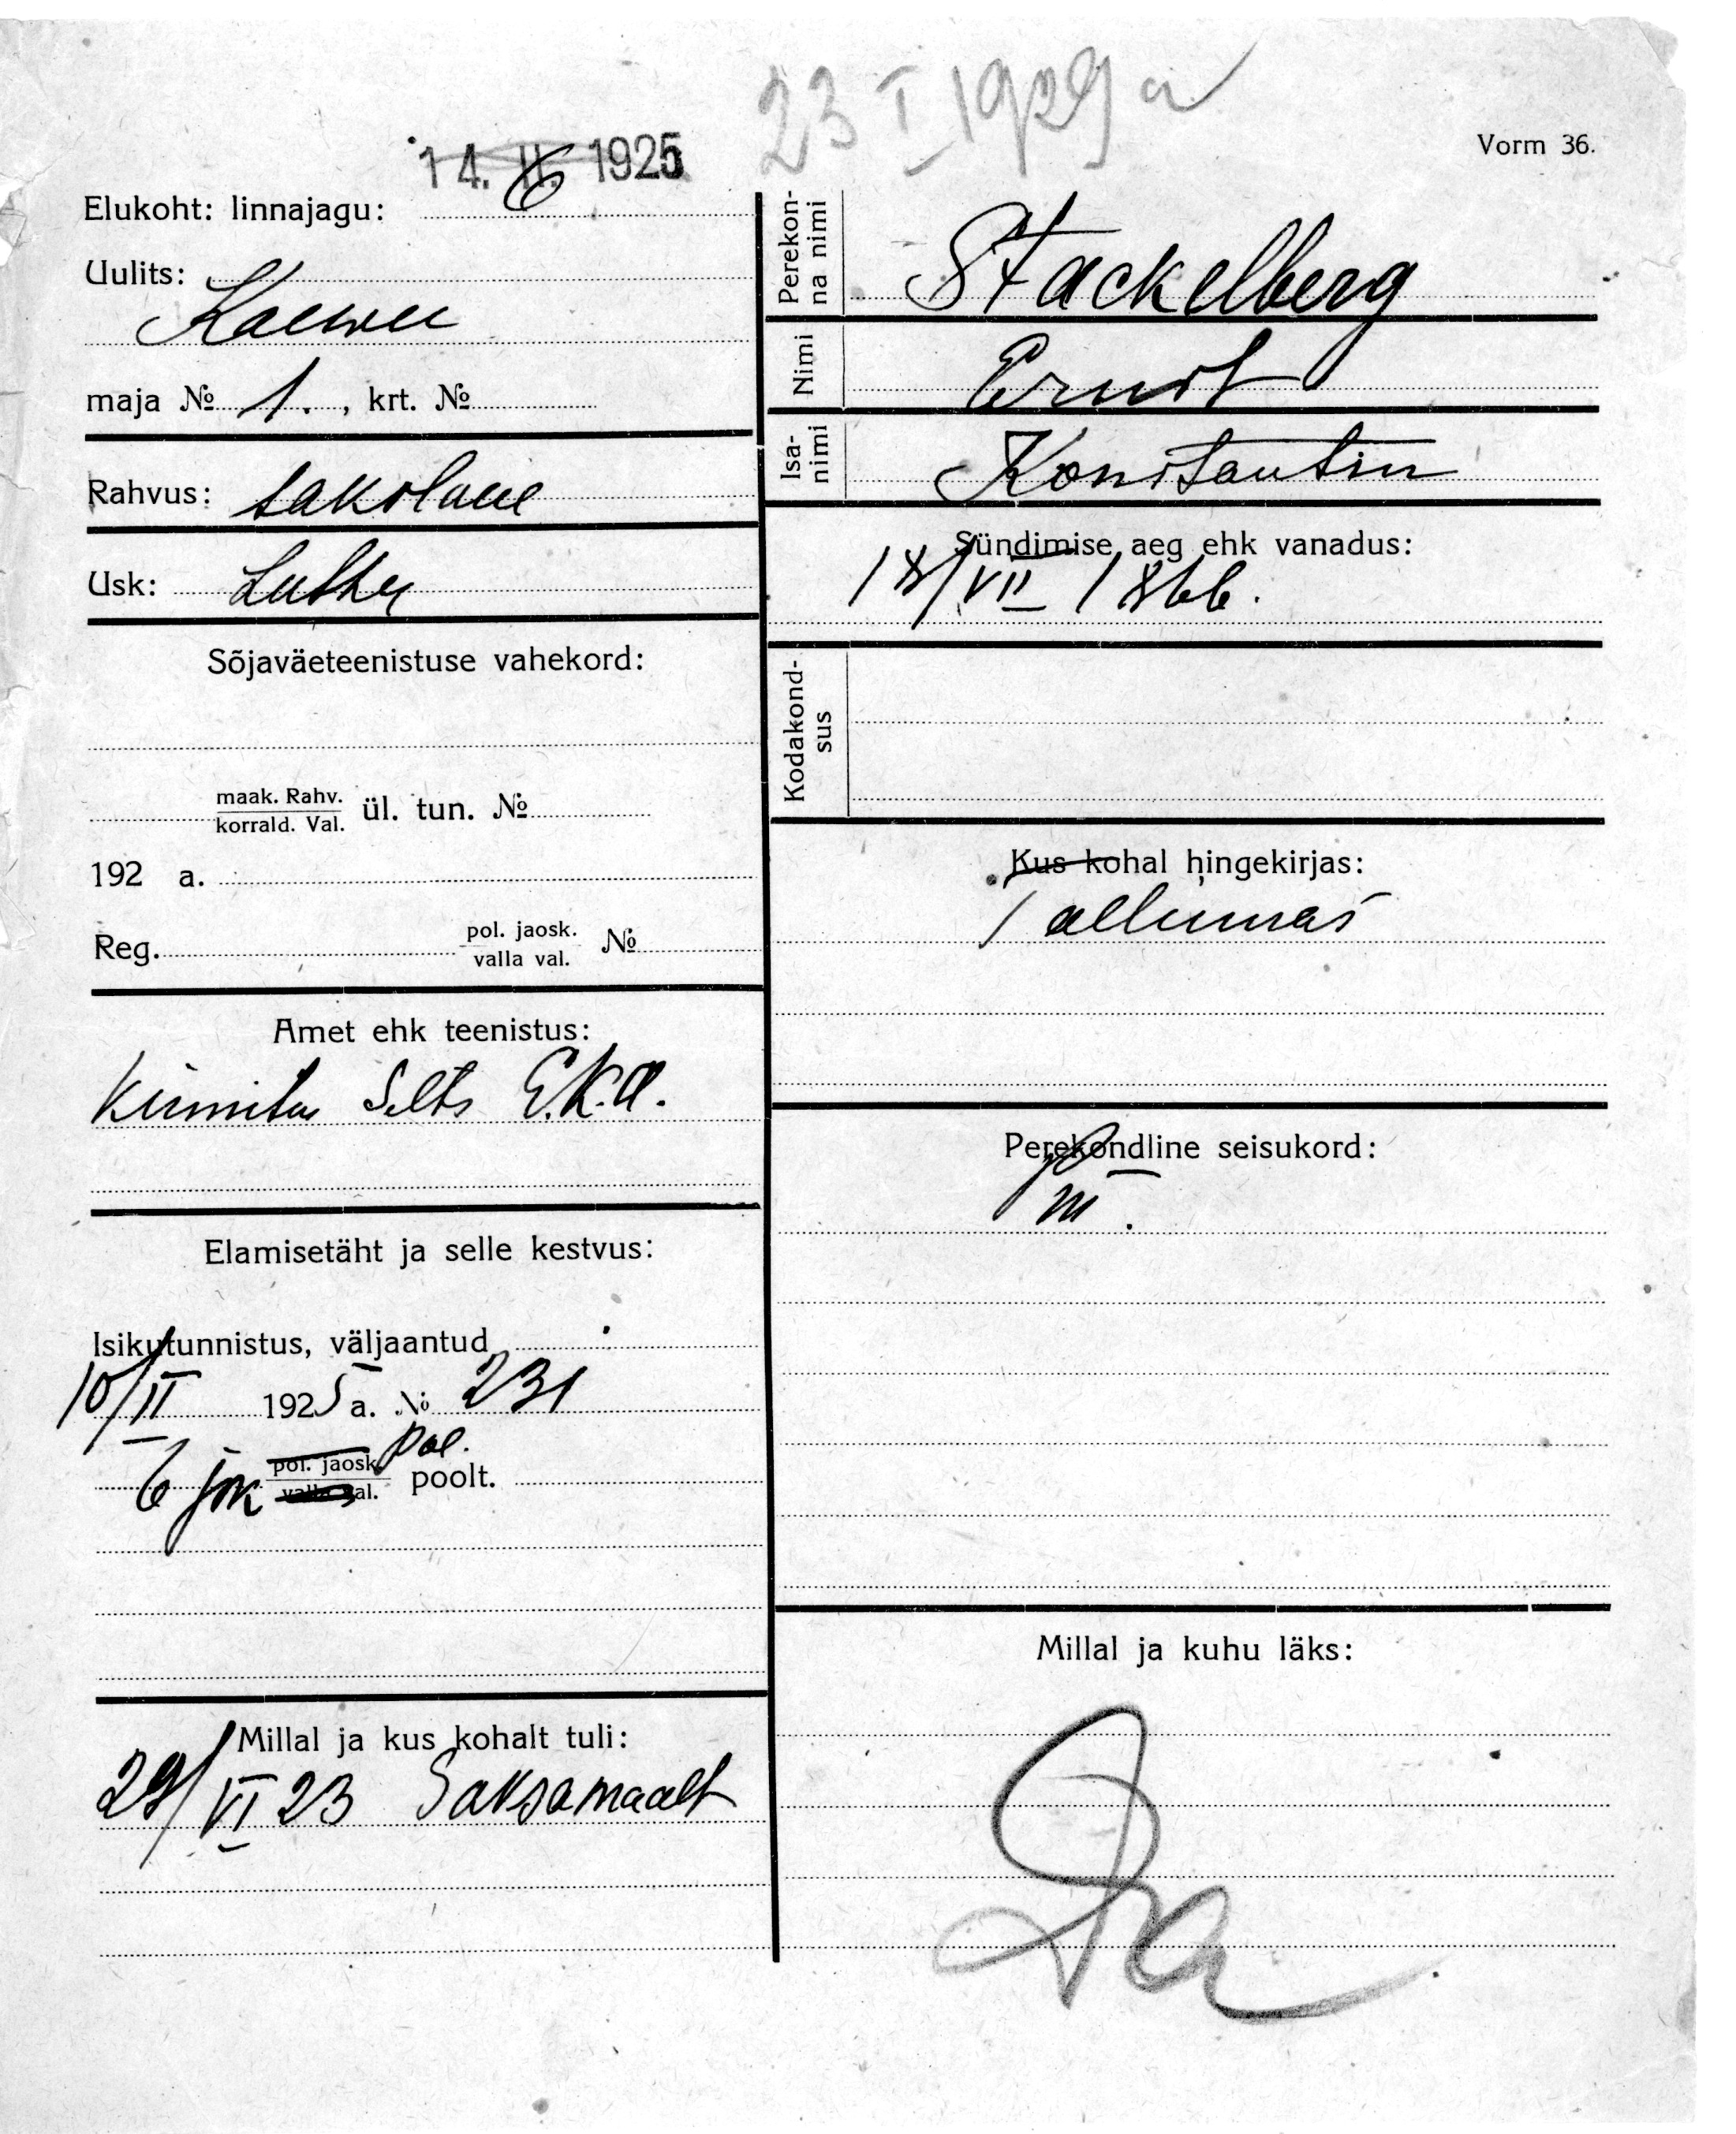 23 I 1929 a
Vorm 36.
14. II. 1925
Elukoht: linnajagu: 6
Uulits:
Kaewu
maja № 1. , krt. №
Rahvus: sakslane
Usk: Luther
Sõjaväeteenistuse vahekord:
maak. Rahv.
korrald. Val. ül. tun. №
192 a.
Reg. pol. jaosk. №
valla val.
Amet ehk teenistus:
Kinnitus Selts E.K.A.
Elamisetäht ja selle kestvus:
Isikutunnistus, väljaantud
10/II 1925 a. № 231
6 jsk pol. jaosk. pol.
valla val. poolt.
Millal ja kus kohalt tuli:
29/VI 23 Saksamaalt
Perekon-
na nimi
Stackelberg
Nimi
Ernst
Isa-
nimi
Konstantin
Sündimise aeg ehk vanadus:
18/VII 1866.
Kodakond-
sus
Kus kohal hingekirjas:
Tallinnas
Perekondline seisukord:
Millal ja kuhu läks: